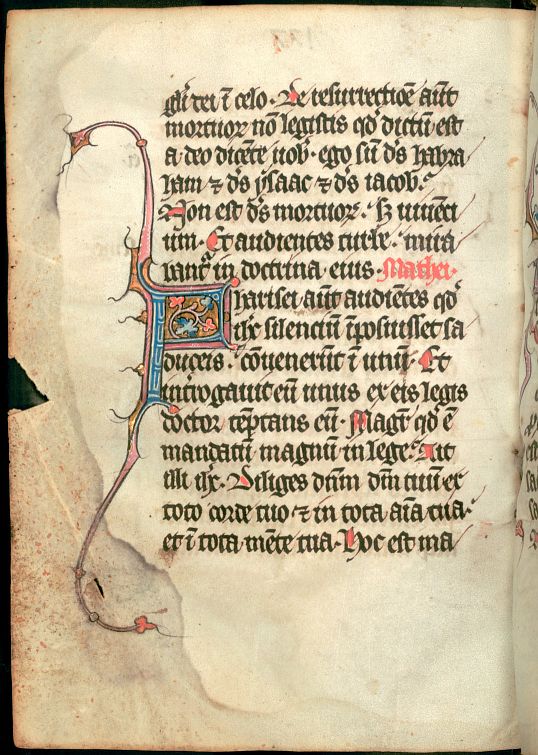 gli dei ī celo. De resurrectiōe aūt
mortuoꝝ nō legistis qd̄ dictū est
a deo dicēte uob̄. ego sū ds̄ habra
ham ⁊ ds̄ ysaac ⁊ ds̄ iacob.
Non est ds̄ mortuoꝝ. sꝫ uiuēti
um. Et audientes turbe. mira
bant᷑ in doctrina eius. Mathei.
Pharisei aūt audiētes qd̄
ihc̄ silenciū īposuisset sa
duceis. cōuenerūt ī unū. Et
int̄rogauit eū unus ex eis legis
doctor tēptans eū. Magr̄ qd̄ ē
mandatū magnū in lege. Ait
illi ihc̄. Diliges dn̄m dm̄ tuū ex
toto corde tuo ⁊ in tota aīa tua.
et ī tota mēte tua. Hoc est ma